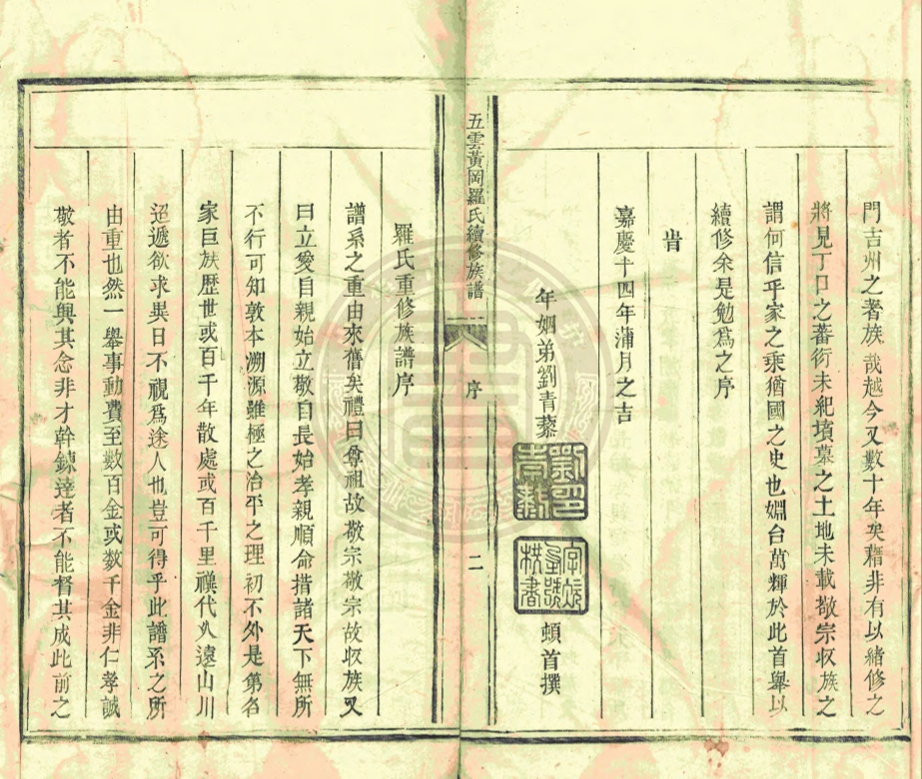 門吉州之著族哉越今又數十年矣藉非有以緒修之
將見丁口之蕃衍未紀墳墓之土地未載敬宗収族之
謂何信乎家之乘猶國之史也姻台萬輝於此首舉以
續修余是勉爲之序
旹
嘉慶十四年蒲月之吉
年姻弟劉青藜
頓首撰
五雲黃岡羅氏續修族譜
序
二
羅氏重修族譜序
譜系之重由來舊矣禮曰尊祖故敬宗敬宗故収族又
曰立愛自親始立敬自長始孝親順命措諸天下無所
不行可知敦本溯源雖極之治平之理初不外是第名
家巨族歴世或百千年散處或百千里禩代久遠山川
迢遞欲求異日不視爲途人也豈可得乎此譜系之所
由重也然一舉事動費至數百金或数千金非仁孝誠
敬者不能興其念非才幹鍊達者不能督其成此前之